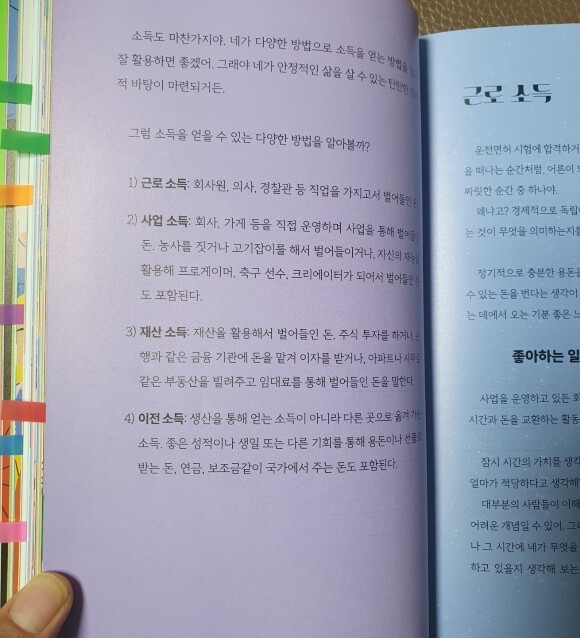 소득도 마찬가지야. 네가 다양한 방법으로 소득을 얻는 방법을
잘 활용하면 좋겠어. 그래야 네가 안정적인 삶을 살 수 있는 탄탄한
적 바탕이 마련되거든.
그럼 소득을 얻을 수 있는 다양한 방법을 알아볼까?
1) 근로 소득: 회사원, 의사, 경찰관 등 직업을 가지고서 벌어들인 돈.
2) 사업 소득: 회사, 가게 등을 직접 운영하며 사업을 통해 벌어들인
돈. 농사를 짓거나 고기잡이를 해서 벌어들이거나, 자신의 재능을
활용해 프로게이머, 축구 선수, 크리에이터가 되어서 벌어들인 돈
도 포함된다.
3) 재산 소득: 재산을 활용해서 벌어들인 돈. 주식 투자를 하거나, 은
행과 같은 금융 기관에 돈을 맡겨 이자를 받거나, 아파트나 사무실
같은 부동산을 빌려주고 임대료를 통해 벌어들인 돈을 말한다.
4) 이전 소득: 생산을 통해 얻는 소득이 아니라 다른 곳으로 옮겨 가는
소득. 좋은 성적이나 생일 또는 다른 기회를 통해 용돈이나 선물로
받는 돈, 연금, 보조금같이 국가에서 주는 돈도 포함된다.
근로 소득
운전면허 시험에 합격하거
을 떠나는 순간처럼, 어른이
짜릿한 순간 중 하나야.
왜냐고? 경제적으로 독립
는 것이 무엇을 의미하는지를
정기적으로 충분한 용돈을
수 있는 돈을 번다는 생각이
는 데에서 오는 기분 좋은 느
좋아하는 일
사업을 운영하고 있든 회
시간과 돈을 교환하는 활동
잠시 시간의 가치를 생각
얼마가 적당하다고 생각해?
대부분의 사람들이 이해
어려운 개념일 수 있어. 그
나 그 시간에 네가 무엇을
하고 있을지 생각해 보는